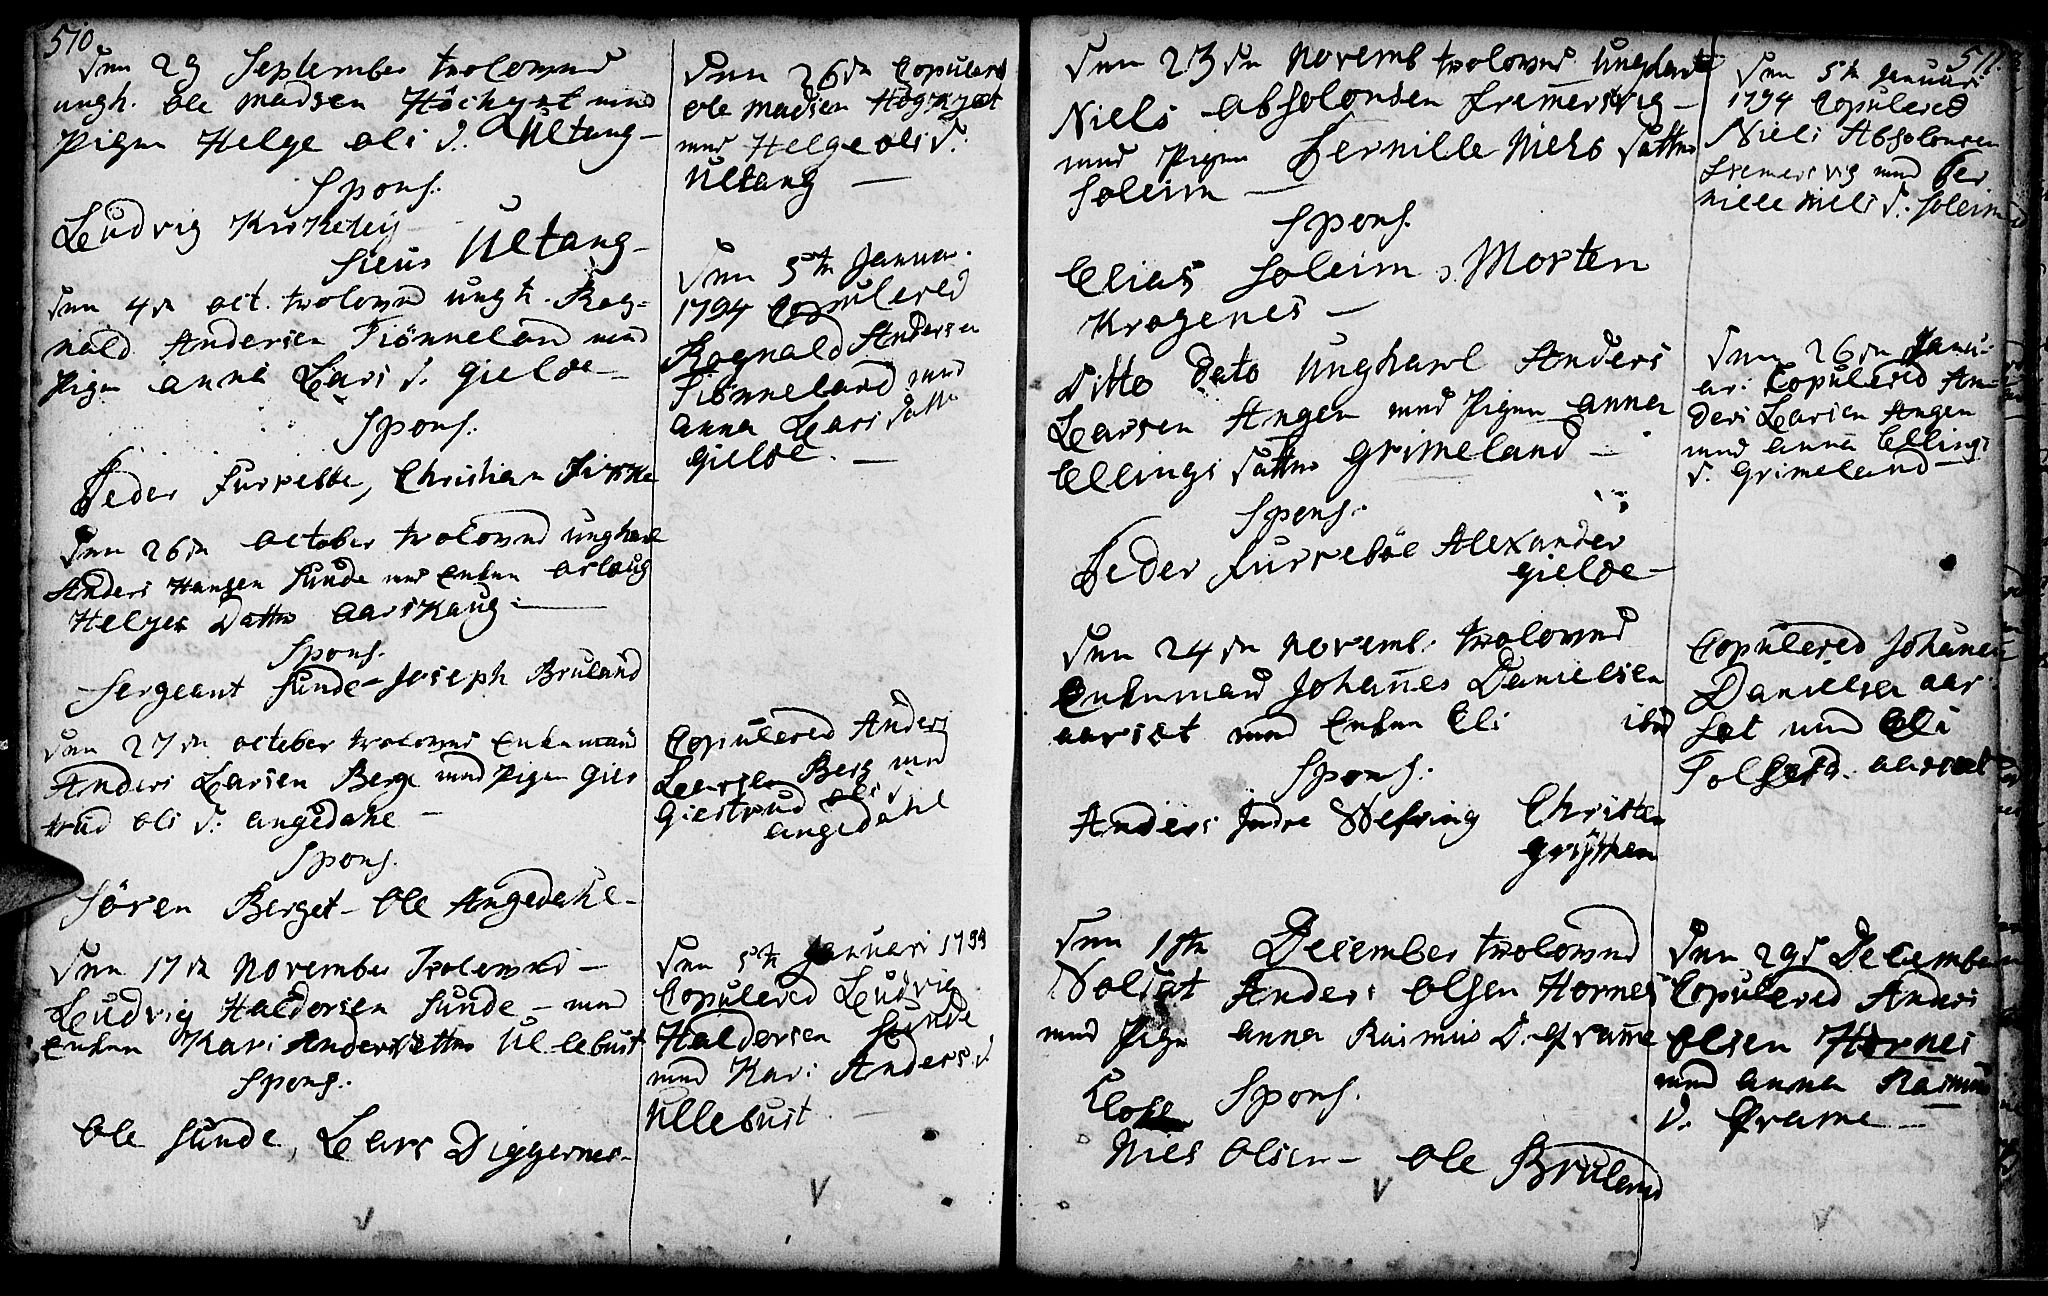 510
Den 29 September trolowed
ungk. Ole Madsen Höchyst med
Pigen Helge Ols D. Ultang
Spons.
Ludvig Kirkeley
Siens Ultang
Den 4de Oct. trolowed ungk. Rag=
nald Andersen Tiönneland med
Pigen Anna Lars D. Gielde
Spons.
Peder Furreböe, Christian
Den 26de October trolowed ungkarl
Anders Hansen Sunde med Enken Orlaug
Helges Datter Aarskaug
Spons.
Sergeant Sunde - Joseph Bruland
Den 27de October trolowed Enkemand
Anders Larsen Berge med Pigen Gier
trud Ols D: Angedahl
Spons.
Sören Berget - Ole Angedahl
Den 17de November Trolowed
Ludvig Haldorsen Sunde - med
Enken Kari Anders Datter Ullebust
Spons.
Ole Sunde, Lars Diggernes
Den 26de Copulered
Ole Madsen
med Helge Ols D:
Ultang
Den 5te Janua.
1794 Copulered
Ragnald Andersen
Tiönneland med
Anna Lars Datter
Gielde
Copulered Anders
Larsen Berg med
Giertrud Ols D
Angedahl
Den 5te Januari 1794
Copulered Ludvig
Haldorsen Sunde
med Kari Anders D
Ullebust
511
Den 23de Novemb trolowed Ungkarl
Niels Absolonsen Fremersvig
med Pigen Pernille Niels Datter
Soleim
Spons.
Elias Soleim, Morten
Krogenes
Ditto Dato Ungkarl Anders
Larsen Angen med Pigen Anna
Ellings Datter Grimeland
Spons.
Peder Furreböe Alexander
Gielde
Den 24de Novemb. trolowed
Enkemand Johanes Danielsen
Aarset med Enken Eli ibid
Spons.
Anders Indre Wefring Christen
Den 1ste Desember trolowed
Soldat Anders Olsen Hornes
med Pigen Anna Rasmus D. Qvame
Spons.
Niels Olsen - Ole Bruland
Den 5te Januari
1794 Copulered
Niels Absolonsen
Fremersvig med Per
nille Niels D: Soleim
Den 26de Janu-
ar: Copulered An=
ders Larsen Angen
med Anna Ellings
D. Grimeland
Copulered Johanes
Danielsen Aar
set med Eli
Aarset
Den 29d December
Copulered Anders
Olsen Hornes
med Anna Rasmus
D. Qvame